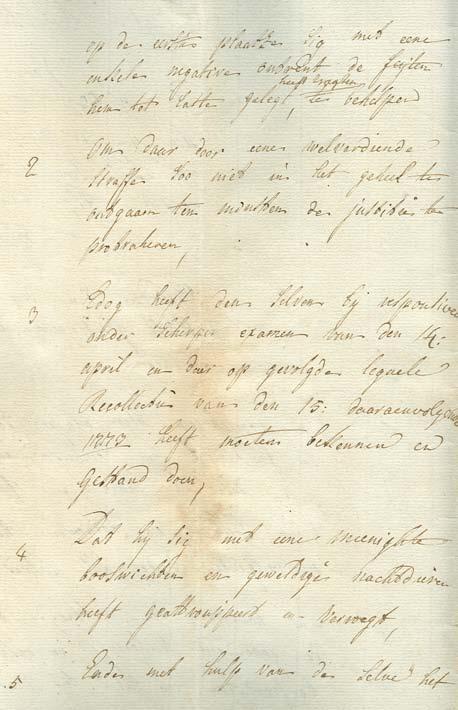 op de eerste plaatze sig met eene
enkele negative ontrent de feijten
heeft tragten
hem tot laste gelegt, te behelpen
2 Om daar door eene welverdiende
straffe soo niet in het geheel te
ontgaan ten minsten de justitie te
protraheren,
3 Edog heeft den selven bij responsiven
onder scherper examen van den 14:
april en daar op gevolgde legaele
Recollectie van den 15: daaraenvolgende
1773 heeft moeten bekennen en
gestand doen,
4 Dat hij sig met eene meenighte
booswichten en geweldige nachtdieven
heeft geattrouppeert en verwegt,
5 Ende met hulp van de selve het